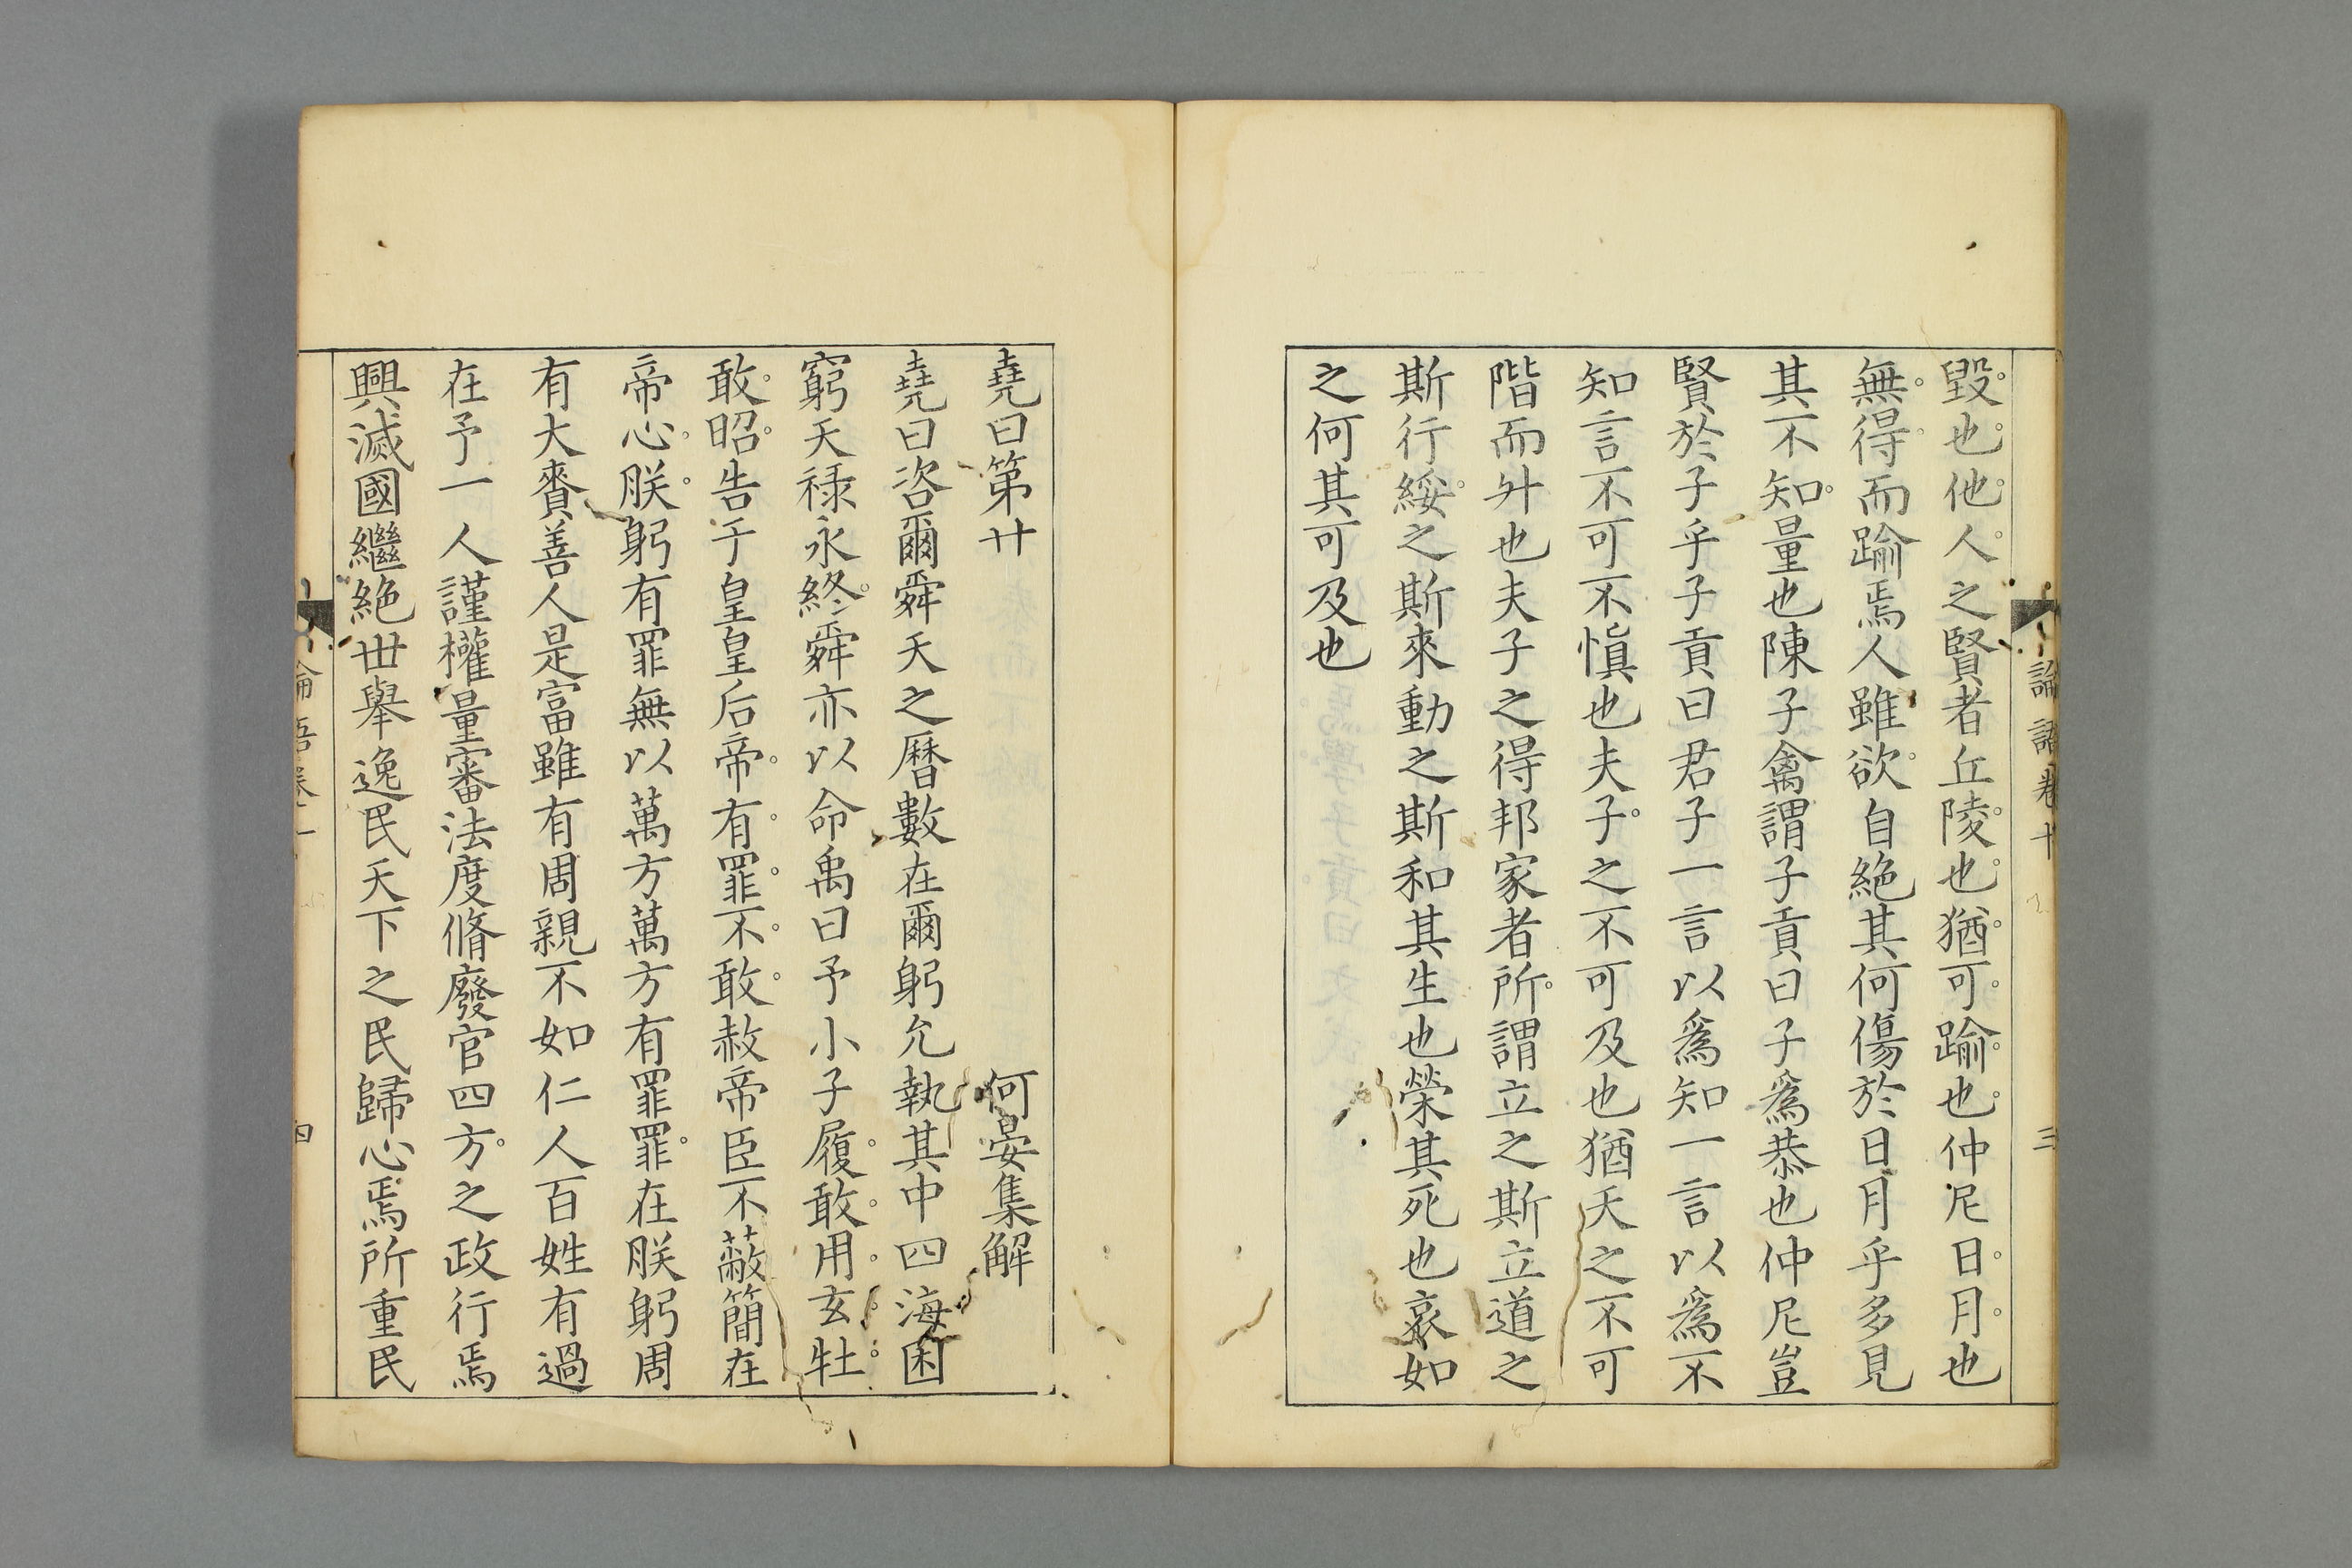 論語卷十 三
毀也他人之賢者丘陵也猶可踰也仲尼日月也
無得而踰焉人雖欲自絶其何傷於日月乎多見
其不知量也陳子禽謂子貢曰子爲恭也仲尼豈
賢於子乎子貢曰君子一言以爲知一言以爲不
知言不可不愼也夫子之不可及也猶天之不可
階而升也夫子之得邦家者所謂立之斯立道之
斯行綏之斯來動之斯和其生也榮其死也哀如
之何其可及也
堯曰第廿 何晏集解
堯曰咨爾舜天之曆數在爾躬允執其中四海困
窮天祿永終舜亦以命禹曰予小子履敢用玄牡
敢昭告于皇皇后帝有罪不敢赦帝臣不蔽簡在
帝心朕躬有罪無以萬方萬方有罪罪在朕躬周
有大賚善人是富雖有周親不如仁人百姓有過
在予一人謹權量審法度脩廢官四方之政行焉
興滅國繼絶世舉逸民天下之民歸心焉所重民